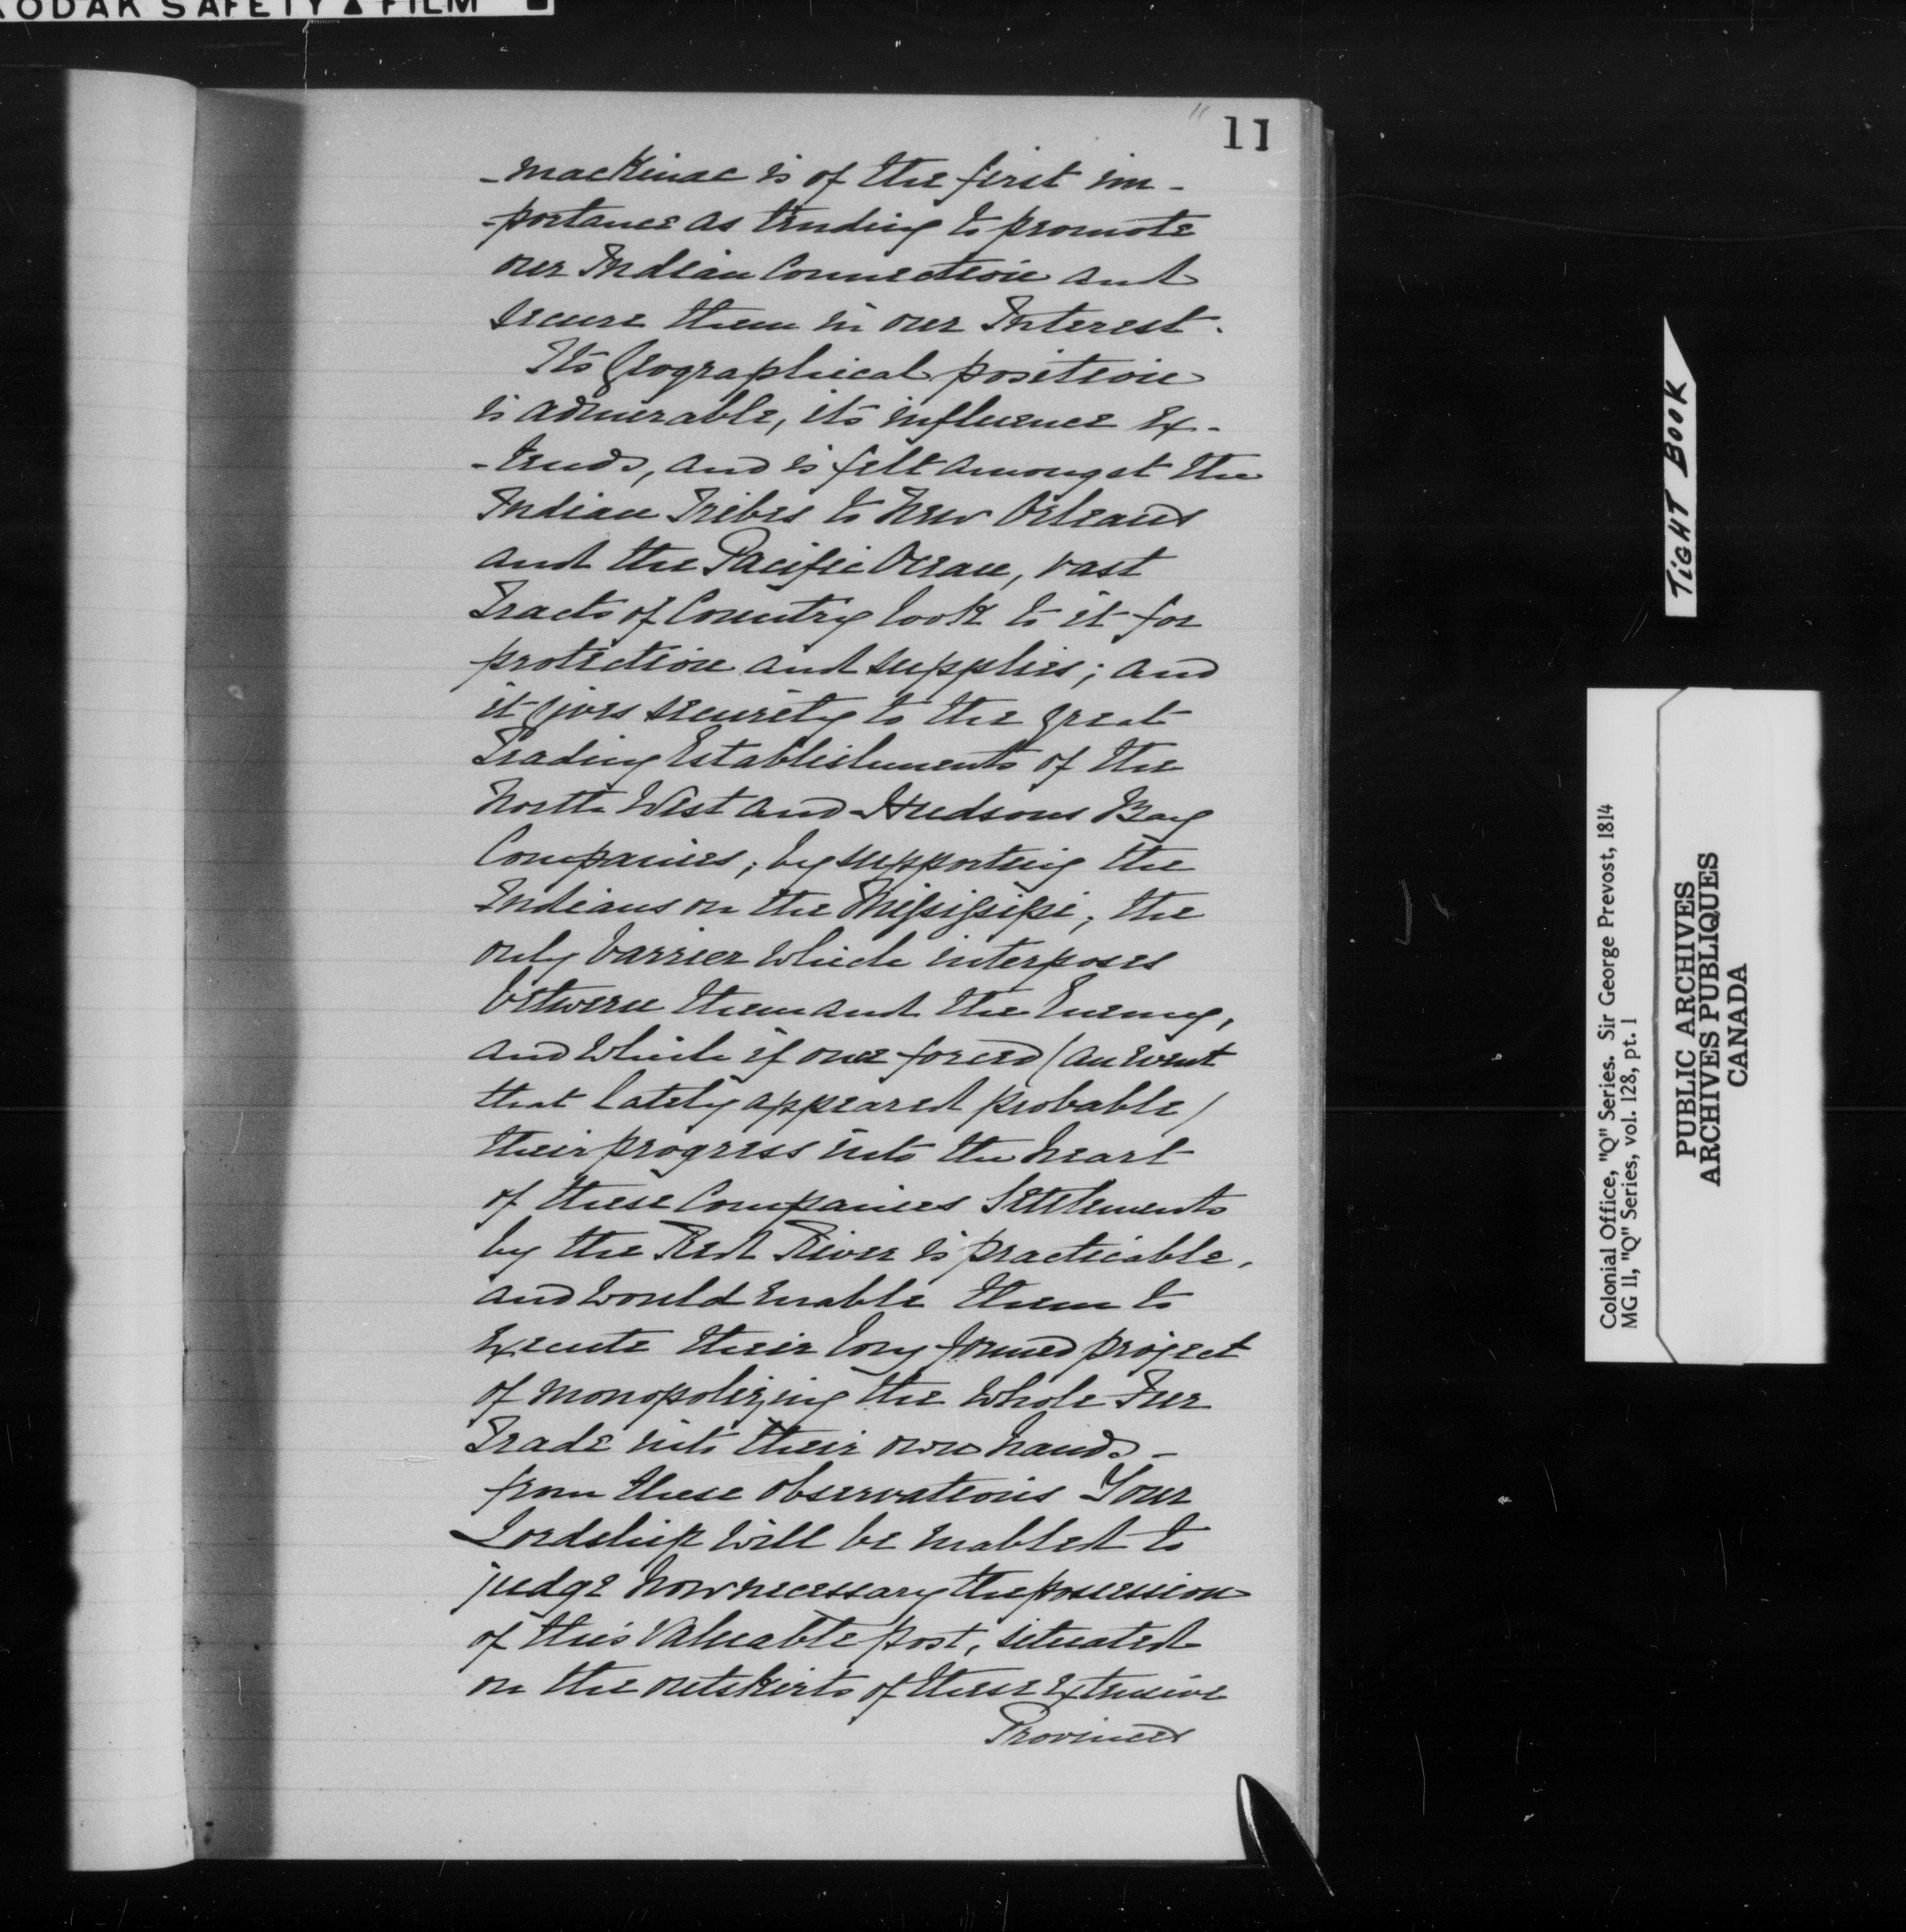 KODAK SAFETY ▲ FILM
11
-mackinac is of the first im-
-portance as tending to promote
our Indian Connection and
secure them in our Interest.
Its Geographical position
is admirable, its influence ex-
-tends, and is felt amongst the
Indian Tribes to New Orleans
and the Pacific Ocean, vast
Tracts of Country look to it for
protection and supplies; and
it gives security to the great
Trading Establishments of the
North West and Hudsons Bay
Companies, by supporting the
Indians on the Missisipi, the
only barrier which interposes
between them and the Enemy,
and which if once forced (an event
that lately appeared probable)
their progress into the heart
of these Companies Settlements
by the Red River is practicable,
and would enable them to
execute their long formed project
of monopolizing the whole Fur
Trade into their own hands.-
from these observations Your
Lordship will be enabled to
judge how necessary the possession
of this valuable post, situated
on the outskirts of these extensive
Provinces
TIGHT BOOK
Colonial Office, "Q" Series. Sir George Prevost, 1814
MG 11, "Q" Series, vol. 128, pt. 1
PUBLIC ARCHIVES
ARCHIVES PUBLIQUES
CANADA